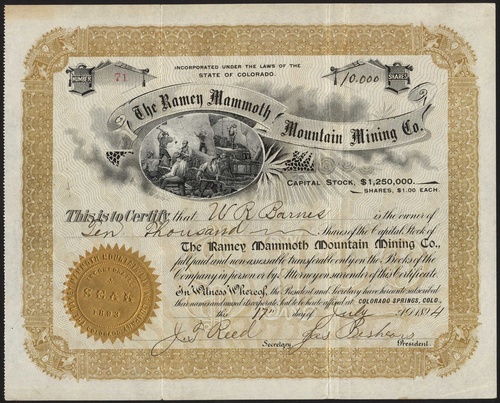 INCORPORATED UNDER THE LAWS OF THE
STATE OF COLORADO.
NUMBER
71
10.000
SHARES
The Ramey Mammoth
Mountain Mining Co.
CAPITAL STOCK, $1,250,000.
SHARES, $1.00 EACH.
This is to Certify that W R Barnes is the owner of
Ten Thousand Shares of the Capital Stock of
The Ramey Mammoth Mountain Mining Co.,
full paid and non-assessable transferable only on the Books of the
Company in person or by Attorney on surrender of this Certificate.
In Witness Whereof, the President and Secretary have hereunto subscribed
their names and caused the corporate Seal to be hereto affixed at COLORADO SPRINGS, COLO.
this 17th day of July 1894
J F Reed
Secretary.
President.
SEAL